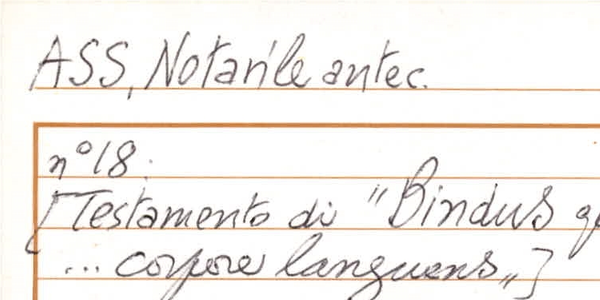 ASS, Notarile antec.
n° 18.
[Testamento di "Bindus
... corpore languens„]